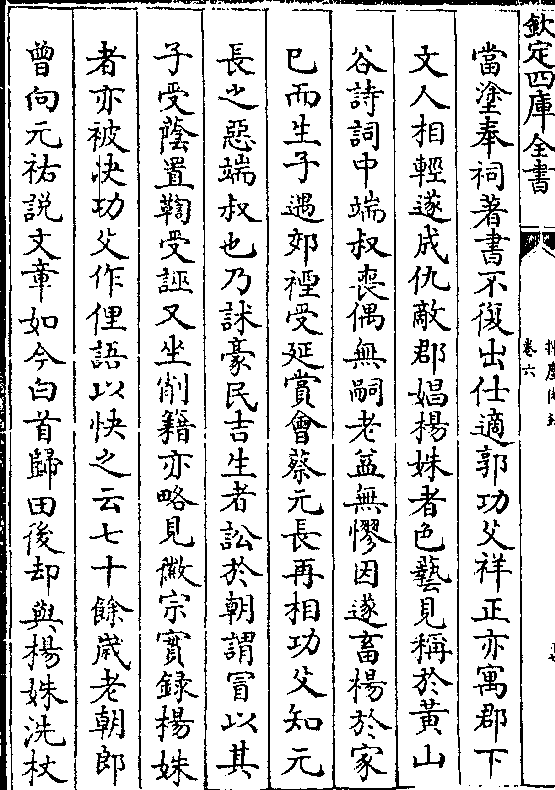 欽定四庫全書
卷六
當塗奉祠著書不復出仕適郭功父祥正亦寓郡下
文人相輕遂成仇敵郡娼楊姝者色藝見稱於黃山
谷詩詞中端叔喪偶無嗣老益無憀因遂畜楊於家
已而生子遇郊禋受延賞會蔡元長再相功父知元
長之惡端叔也乃訹豪民吉生者訟於朝謂冒以其
子受蔭置鞫受誣又坐削籍亦略見徽宗實録楊姝
者亦被決功父作俚語以快之云七十餘歲老朝郎
曽向元祐説文章如今白首歸田後却與楊姝洗杖